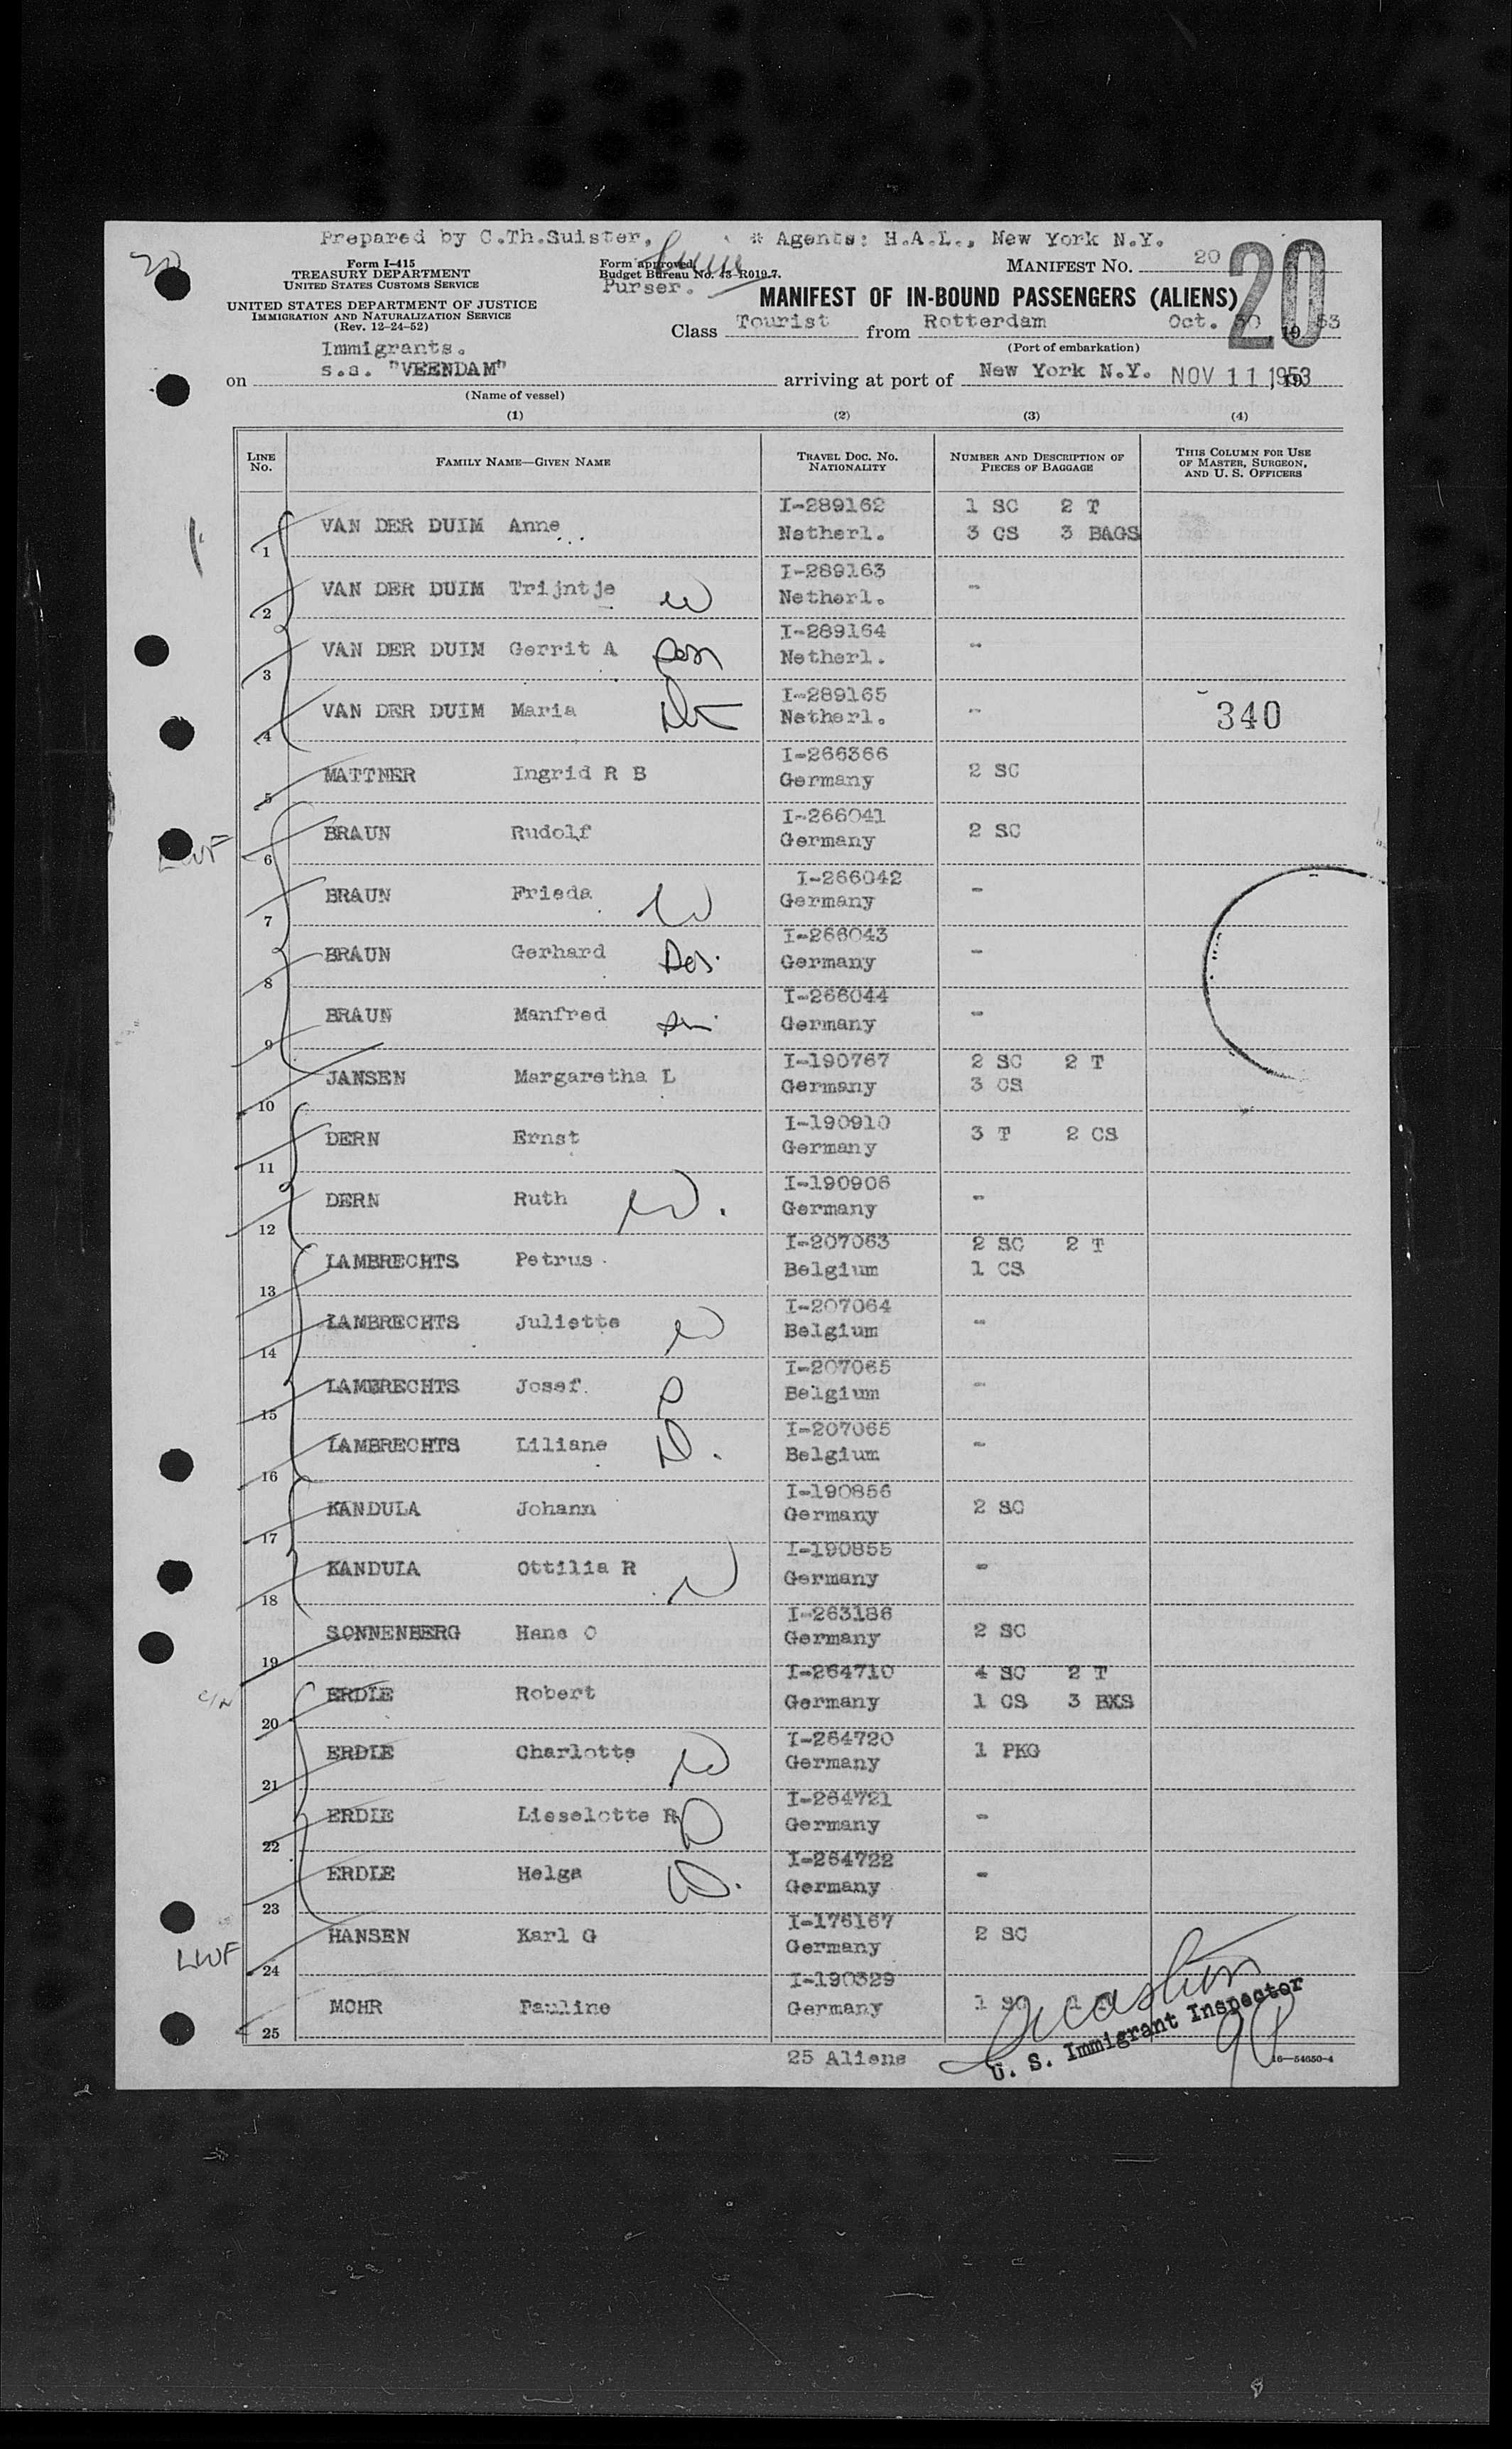 Prepared by C.Th.Suister, * Agents: H.A.L., New York N.Y.
20
Form I-415
TREASURY DEPARTMENT
UNITED STATES CUSTOMS SERVICE
UNITED STATES DEPARTMENT OF JUSTICE
IMMIGRATION AND NATURALIZATION SERVICE
(Rev. 12-24-52)
Form approved.
Budget Bureau No. 43-R019.7.
Purser.
MANIFEST No. 20
20
MANIFEST OF IN-BOUND PASSENGERS (ALIENS)
Class Tourist from Rotterdam Oct. 30 1953
(Port of embarkation)
Immigrants.
on s.s. "VEENDAM" arriving at port of New York N.Y. NOV 11 1953
(Name of vessel)
(1) (2) (3) (4)
LINE No. FAMILY NAME—GIVEN NAME TRAVEL DOC. No. NATIONALITY NUMBER AND DESCRIPTION OF PIECES OF BAGGAGE THIS COLUMN FOR USE OF MASTER, SURGEON, AND U. S. OFFICERS
1 VAN DER DUIM Anne I-289162 Netherl. 1 SC 2 T 3 CS 3 BAGS
2 VAN DER DUIM Trijntje W I-289163 Netherl. -
3 VAN DER DUIM Gerrit A son I-289164 Netherl. -
4 VAN DER DUIM Maria I-289165 Netherl. - 340
5 MATTNER Ingrid R B I-266366 Germany 2 SC
LWF
6 BRAUN Rudolf I-266041 Germany 2 SC
7 BRAUN Frieda W I-266042 Germany -
8 BRAUN Gerhard I-266043 Germany -
9 BRAUN Manfred I-266044 Germany -
10 JANSEN Margaretha L I-190767 Germany 2 SC 2 T 3 CS
11 DERN Ernst I-190910 Germany 3 T 2 CS
12 DERN Ruth W. I-190906 Germany -
13 LAMBRECHTS Petrus I-207063 Belgium 2 SC 2 T 1 CS
14 LAMBRECHTS Juliette W I-207064 Belgium -
15 LAMBRECHTS Josef I-207065 Belgium -
16 LAMBRECHTS Liliane D. I-207065 Belgium -
17 KANDULA Johann I-190856 Germany 2 SC
18 KANDULA Ottilia R W I-190855 Germany -
19 SONNENBERG Hans O I-263186 Germany 2 SC
20 ERDLE Robert I-264710 Germany 4 SC 2 T 1 CS 3 BXS
21 ERDLE Charlotte W I-264720 Germany 1 PKG
22 ERDLE Lieselotte R D I-264721 Germany -
23 ERDLE Helga D. I-264722 Germany -
LWF
24 HANSEN Karl G I-176167 Germany 2 SC
25 MOHR Pauline I-190329 Germany 1 SC 1 T
25 Aliens
U. S. Immigrant Inspector
16—54650-4